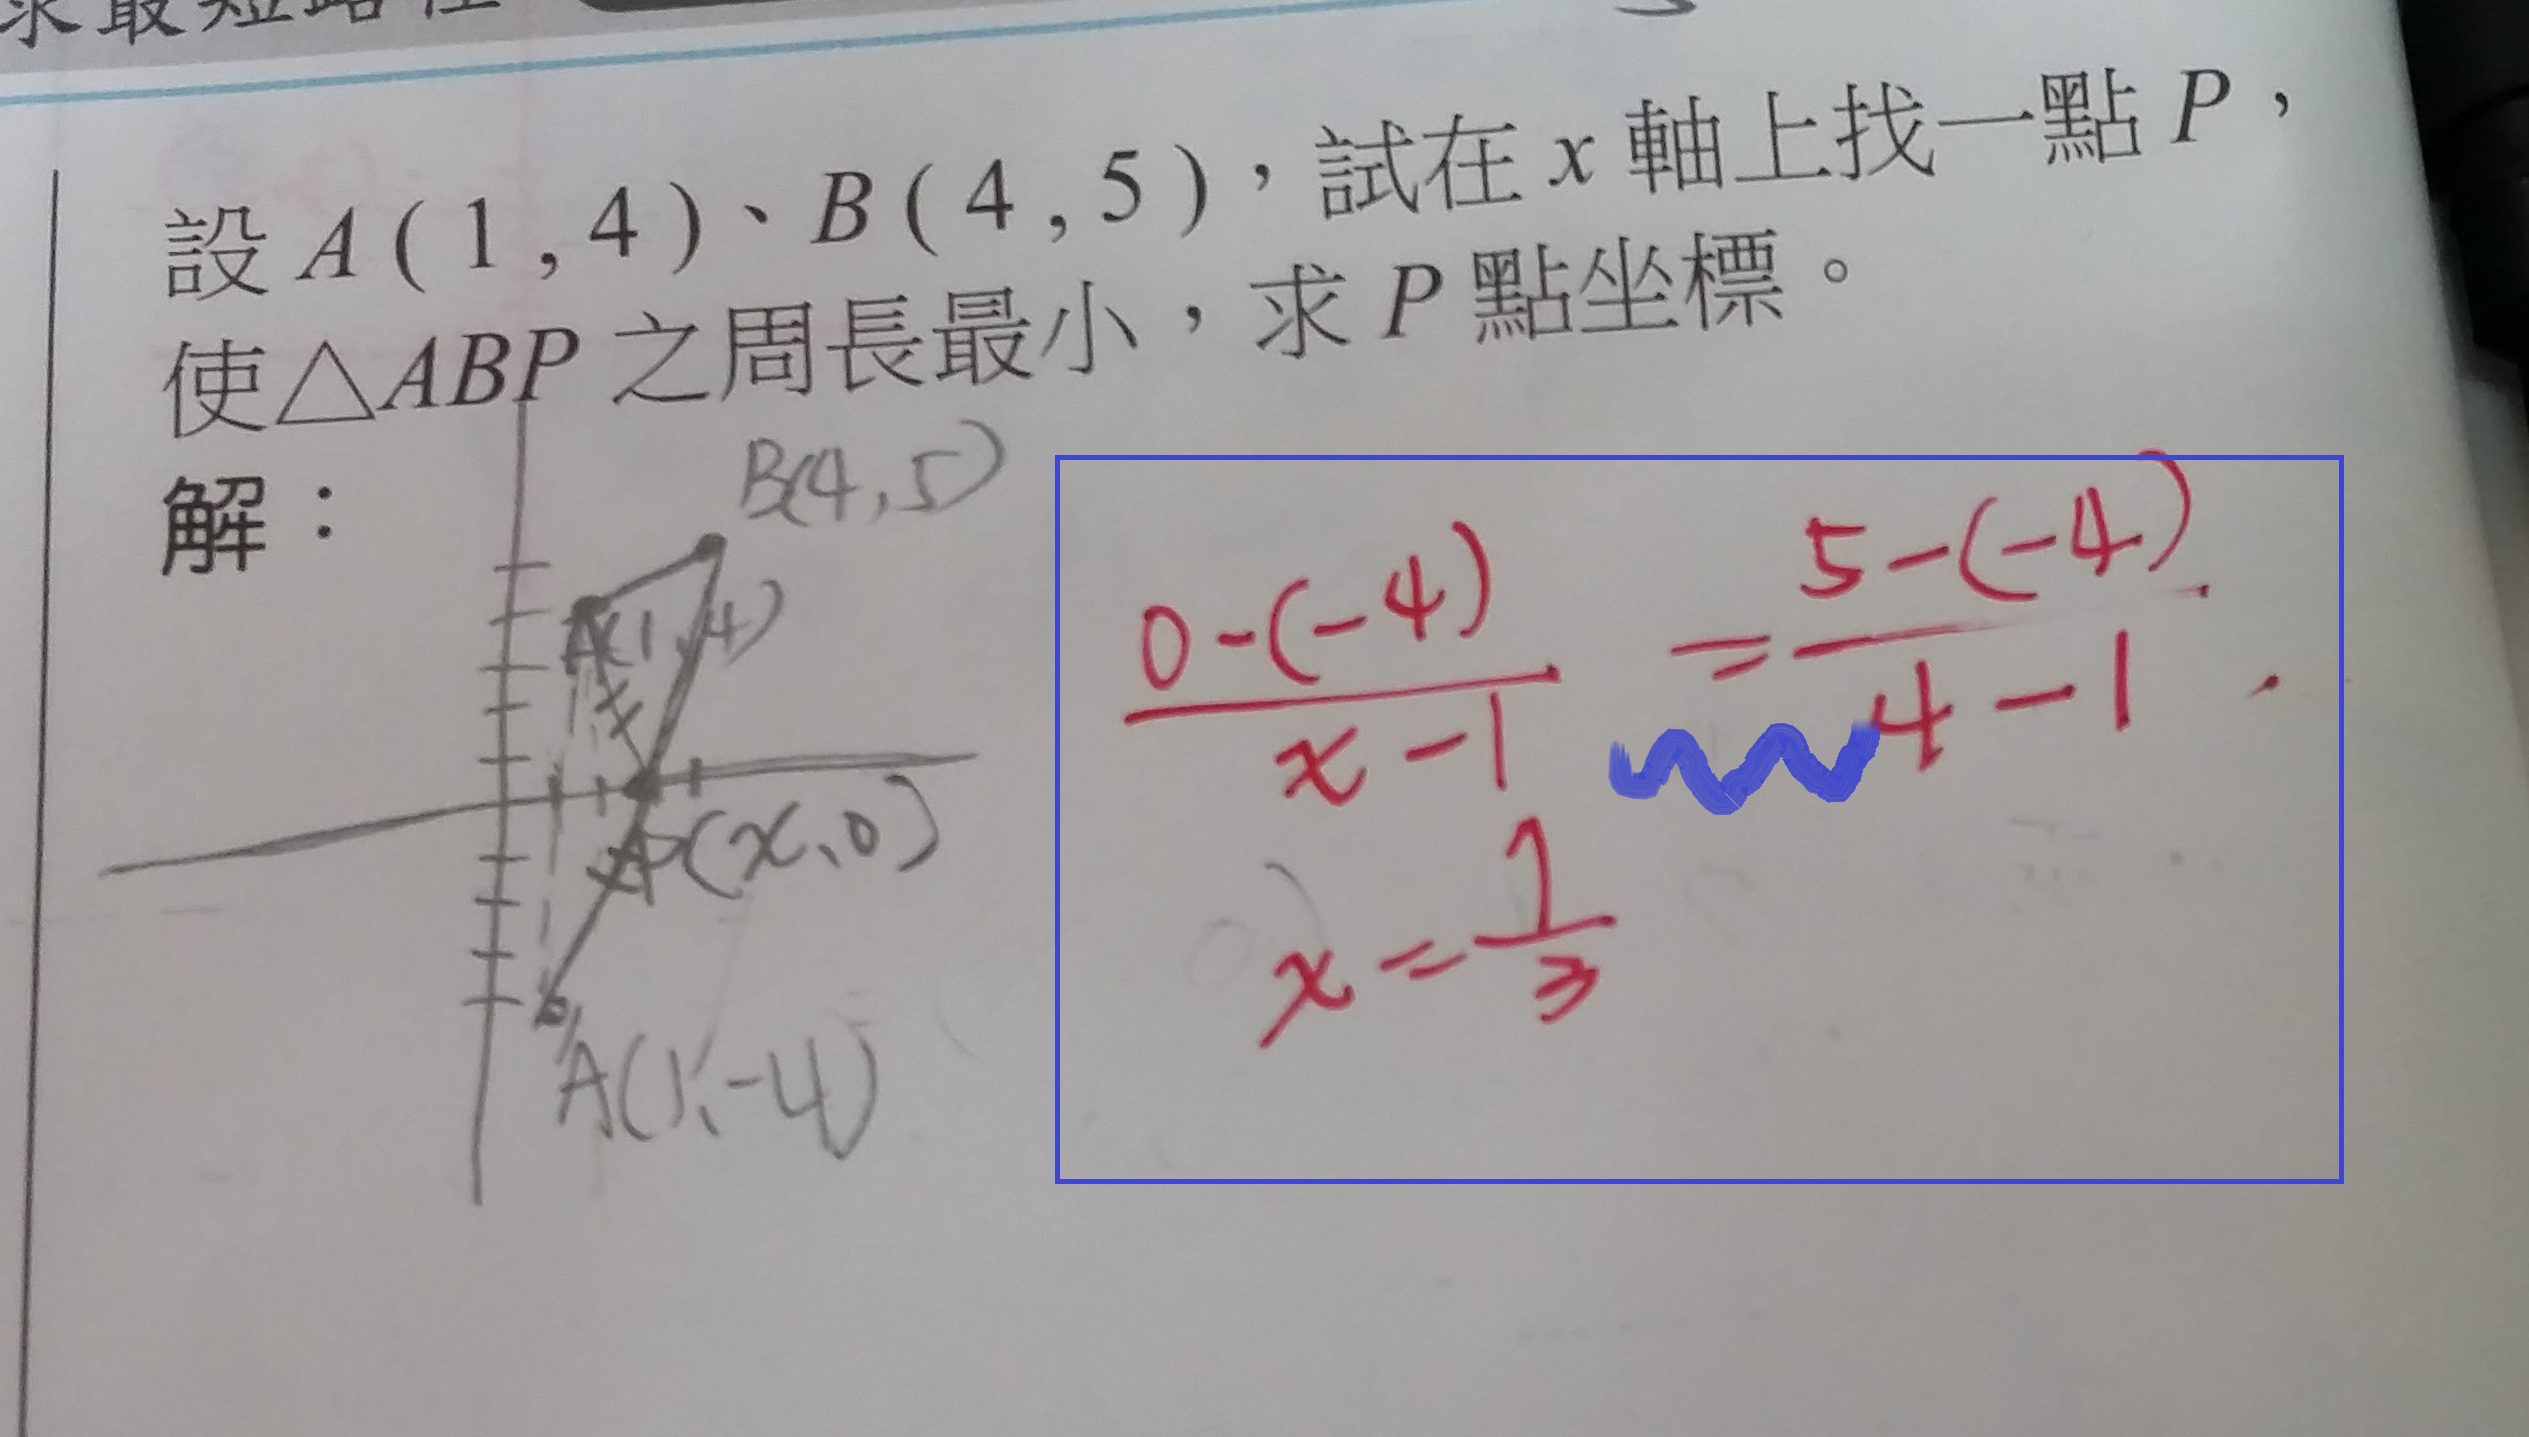 求最短路徑
設 A ( 1 , 4 )、B ( 4 , 5 )，試在 x 軸上找一點 P，
使△ABP 之周長最小，求 P 點坐標。
解：
B(4,5)
A(1,4)
P(x、0)
A'(1、-4)
0-(-4) / x-1 = 5-(-4) / 4-1
x = 7/3